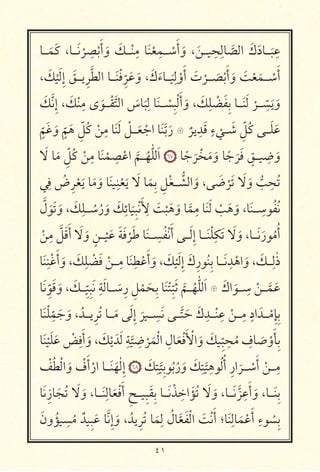 عِبَادَكَ الصَّالِحِينَ، وَأَسْمَعْنَا مِنْكَ وَأَبْصِرْنَا، كَمَا
أَسْمَعْتَ وَأَبْصَرْتَ أَوْلِيَاءَكَ، وَعَرِّفْنَا الطَّرِيقَ إِلَيْكَ،
وَيَسِّرْ لَنَا بِفَضْلِكَ، وَأَلْبِسْنَا لِبَاسَ التَّقْوَى مِنْكَ، إِنَّكَ
عَلَى كُلِّ شَيْءٍ قَدِيرٌ ۞ رَبَّنَا اجْعَلْ لَنَا مِنْ كُلِّ هَمٍّ وَغَمٍّ
وَضِيقٍ فَرَجًا وَمَخْرَجًا ۝ اللَّهُمَّ اعْصِمْنَا مِنْ كُلِّ مَا لَا
تُحِبُّ وَلَا تَرْضَى، وَالشُّغْلِ بِمَا لَا يَعْنِينَا وَمَا يَعْرِضُ فِي
نُفُوسِنَا، وَهَبْ لَنَا مِمَّا وَهَبْتَ لِأَنْبِيَائِكَ وَرُسُلِكَ، وَتَوَلَّ
أُمُورَنَا، وَلَا تَكِلْنَا إِلَى أَنْفُسِنَا طَرْفَةَ عَيْنٍ وَلَا أَقَلَّ مِنْ
ذَلِكَ، وَاهْدِنَا بِنُورِكَ إِلَيْكَ، وَأَعْطِنَا مِنْ فَضْلِكَ، وَأَغْنِنَا
عَمَّنْ سِوَاكَ ۞ اللَّهُمَّ ثَبِّتْنَا بِحَمْلِ رِسَالَةِ نَبِيِّكَ، وَقَوِّنَا
بِإِمْدَادٍ مِنْ عِنْدِكَ حَتَّى نَسِيرَ إِلَى مَا تُرِيدُ، وَجَمِّلْنَا
بِأَوْصَافِ مُحِبِّيكَ وَالْأَفْعَالِ الْمَرْضِيَّةِ لَدَيْكَ، وَأَفِضْ عَلَيْنَا
مِنْ أَسْرَارِ أُلُوهِيَّتِكَ وَرُبُوبِيَّتِكَ ۝ إِلَهَنَا ارْأَفْ وَالْطُفْ
بِنَا، وَأَعِزَّنَا، وَلَا تُؤَاخِذْنَا بِقَبِيحِ أَفْعَالِنَا، وَلَا تُجَازِنَا
بِسُوءِ أَعْمَالِنَا؛ أَنْتَ الْفَعَّالُ لِمَا تُرِيدُ، وَإِنَّا عَبِيدٌ مُسِيؤُونَ
٤١